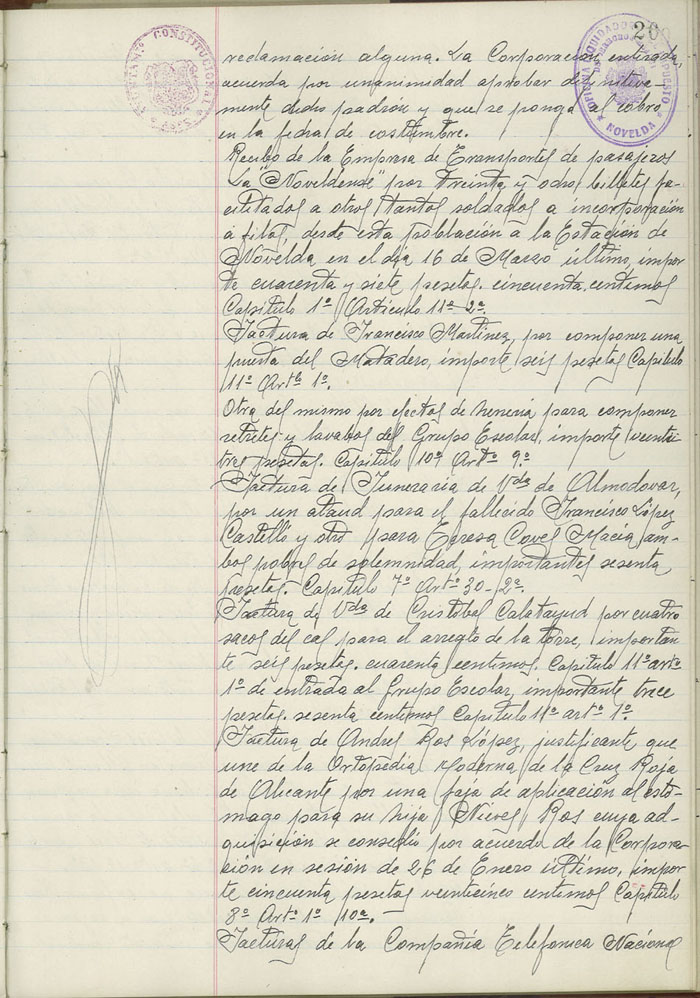 20
AYUNTAMº CONSTITUCIONAL
NOVELDA
reclamación alguna. La Corporación enterada,
acuerda por unanimidad aprobar definitiva-
mente dicho padrón y que se ponga al cobro
en la fecha de costumbre.
Recibo de la Empresa de Transportes de pasajeros
La "Noveldense" por treinta y ocho billetes fa-
cilitados a otros tantos soldados a incorporación
a filas, desde esta población a la Estación de
Novelda en el día 16 de Marzo último, impor
te cuarenta y siete pesetas. cincuenta centimos
Capitulo 1º Articulo 11º 2º.
Factura de Francisco Martinez, por componer una
puerta del Matadero, importe seis pesetas Capitulo
11º Artº 1º.
Otra del mismo por efectos de para componer
retretes y lavabos del Grupo Escolar, importe veinti
tres pesetas. Capitulo 10º Artº 9º
Factura de Funeraria de Vda de Almodovar,
por un ataud para el fallecido Francisco López
Castelló y otro para Teresa Coves Macia, am-
bos pobres de solemnidad, importantes sesenta
pesetas. Capitulo 7º Artº 30-2º.
Factura de Vda de Cristobal Calatayud por cuatro
sacos del cal para el arreglo de la torre, importan
te seis pesetas. cuarenta centimos. Capitulo 11º artº
1º de entrada al Grupo Escolar, importante trece
pesetas. sesenta centimos Capitulo 11º artº 1º.
Factura de Andres Ros López, justificante que
une de la Ortopedia Moderna de la Cruz Roja
de Alicante por una faja de aplicación al estó-
mago para su hija Nieves Ros cuya ad-
quisición se consedió por acuerdo de la Corpora-
ción en sesión de 26 de Enero último, impor
te cincuenta pesetas veinticinco centimos Capitulo
8º Artº 1º 10º.-
Facturas de la Compañia Telefonica Nacional